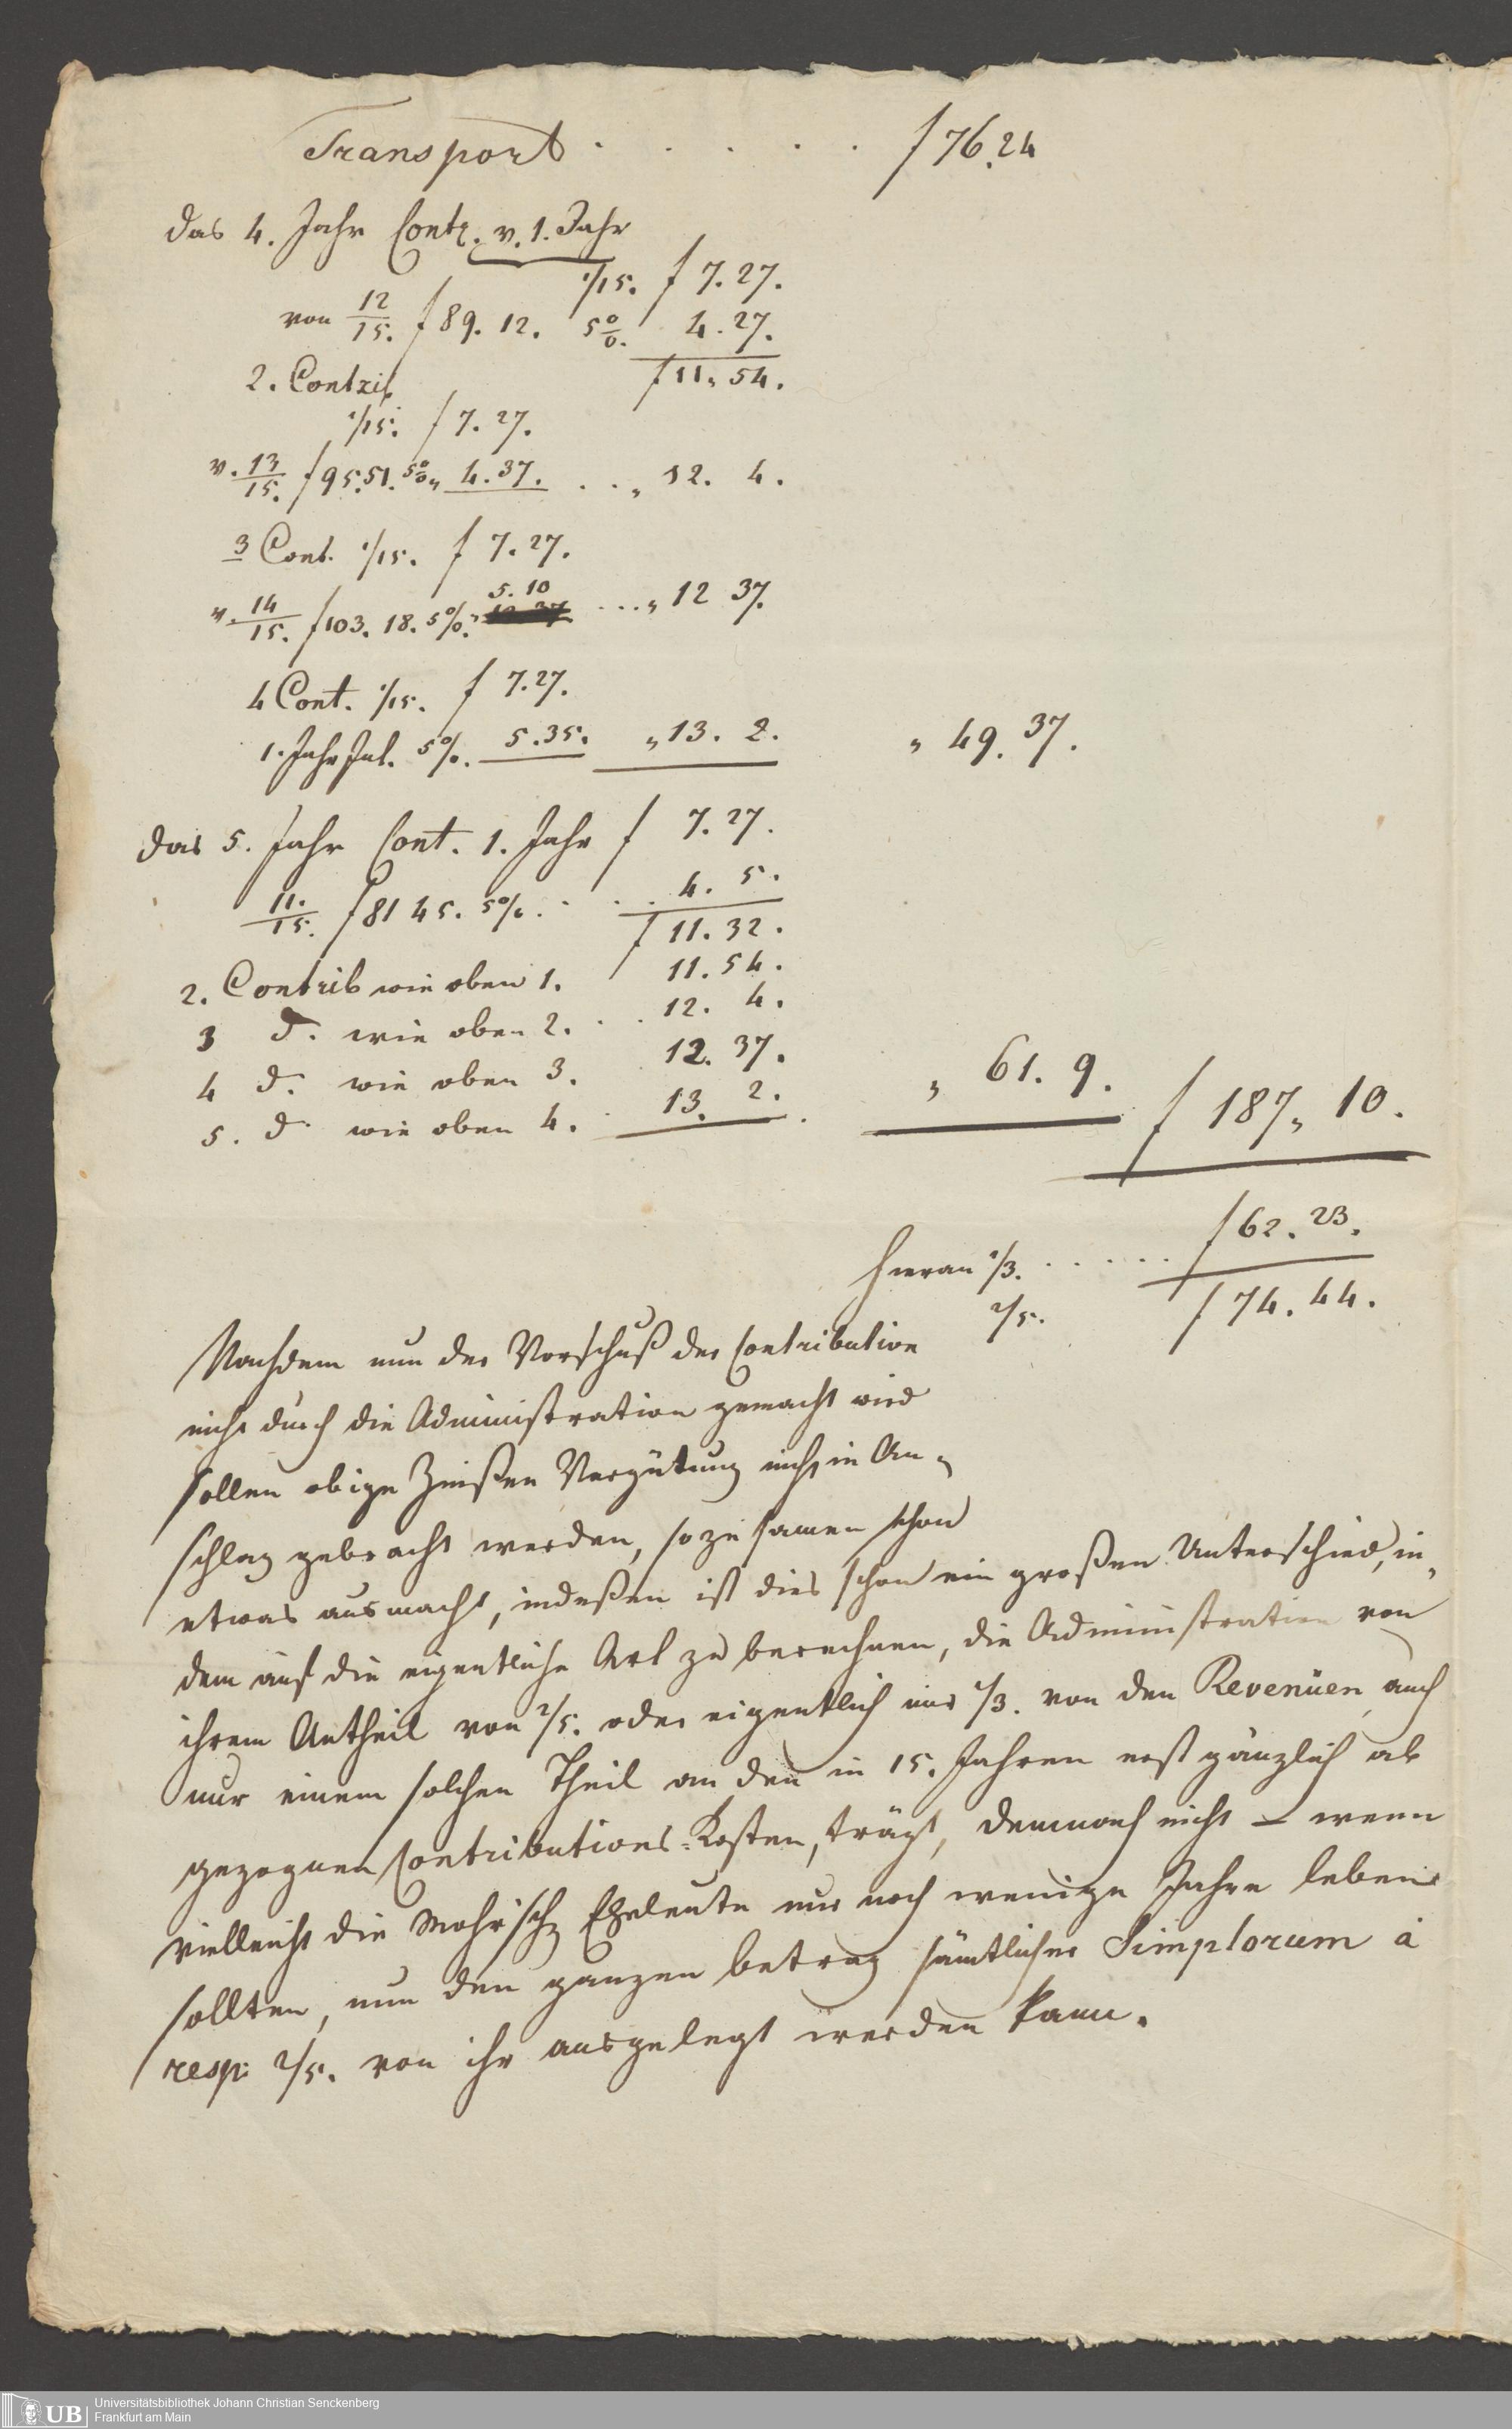 Transport . . . . . f 76.24
das 4. Jahr Contr. v. 1. Jahr
1/15. f 7.27.
von 12/15. f 89. 12. 5 %. 4.27.
f 11, 54.
2. Contrib
1/15. f 7.27.
v. 13/15. f 95.51. 5% „ 4.37. . . „ 12. 4.
3 Cont. 1/15. f 7.27.
5. 10
v. 14/15. f 103. 18. 5%. „ ... „ 12 37.
4 Cont. 1/15. f 7.27.
1. Jahr Int. 5%. 5.35. „ 13. 2. „ 49. 37.
das 5. Jahr Cont. 1. Jahr f 7.27.
11./15. f 81 45. 5%. . . 4. 5.
f 11. 32.
2. Contrib wie oben 1. 11.54.
3 d. wie oben 2. . . 12. 4.
4 d. wie oben 3. . 12. 37.
5. d. wie oben 4. . 13. 2. „ 61. 9. f 187, 10.
hieran 1/3. . . . . . f 62. 23.
2/5. f 74. 44.
Nachdem nun der Vorschuß der Contribution
nicht durch die Administration gemacht wird
sollen obige Zinßen Vergütung nicht in An-
schlag gebracht werden, so zusamen schon
etwas ausmacht, indeßen ist dies schon ein großen Unterschied, in-
dem auf die eigentliche Art zu berechnen, die Administration von
ihrem Antheil von 2/5. oder eigentlich nur 1/3. von den Revenüen auch
nur einem solchen Theil an den in 15. Jahren erst gänzlich ab
gezognen Contributions-Kosten, trägt, demnach nicht – wenn
vielleicht die Mohr'sch Eheleute nur noch wenige Jahre leben
sollten, nun den ganzen betrag sämtlicher Simplorum à
resp: 2/5. von ihr ausgelegt werden kann.
UB
Universitätsbibliothek Johann Christian Senckenberg
Frankfurt am Main